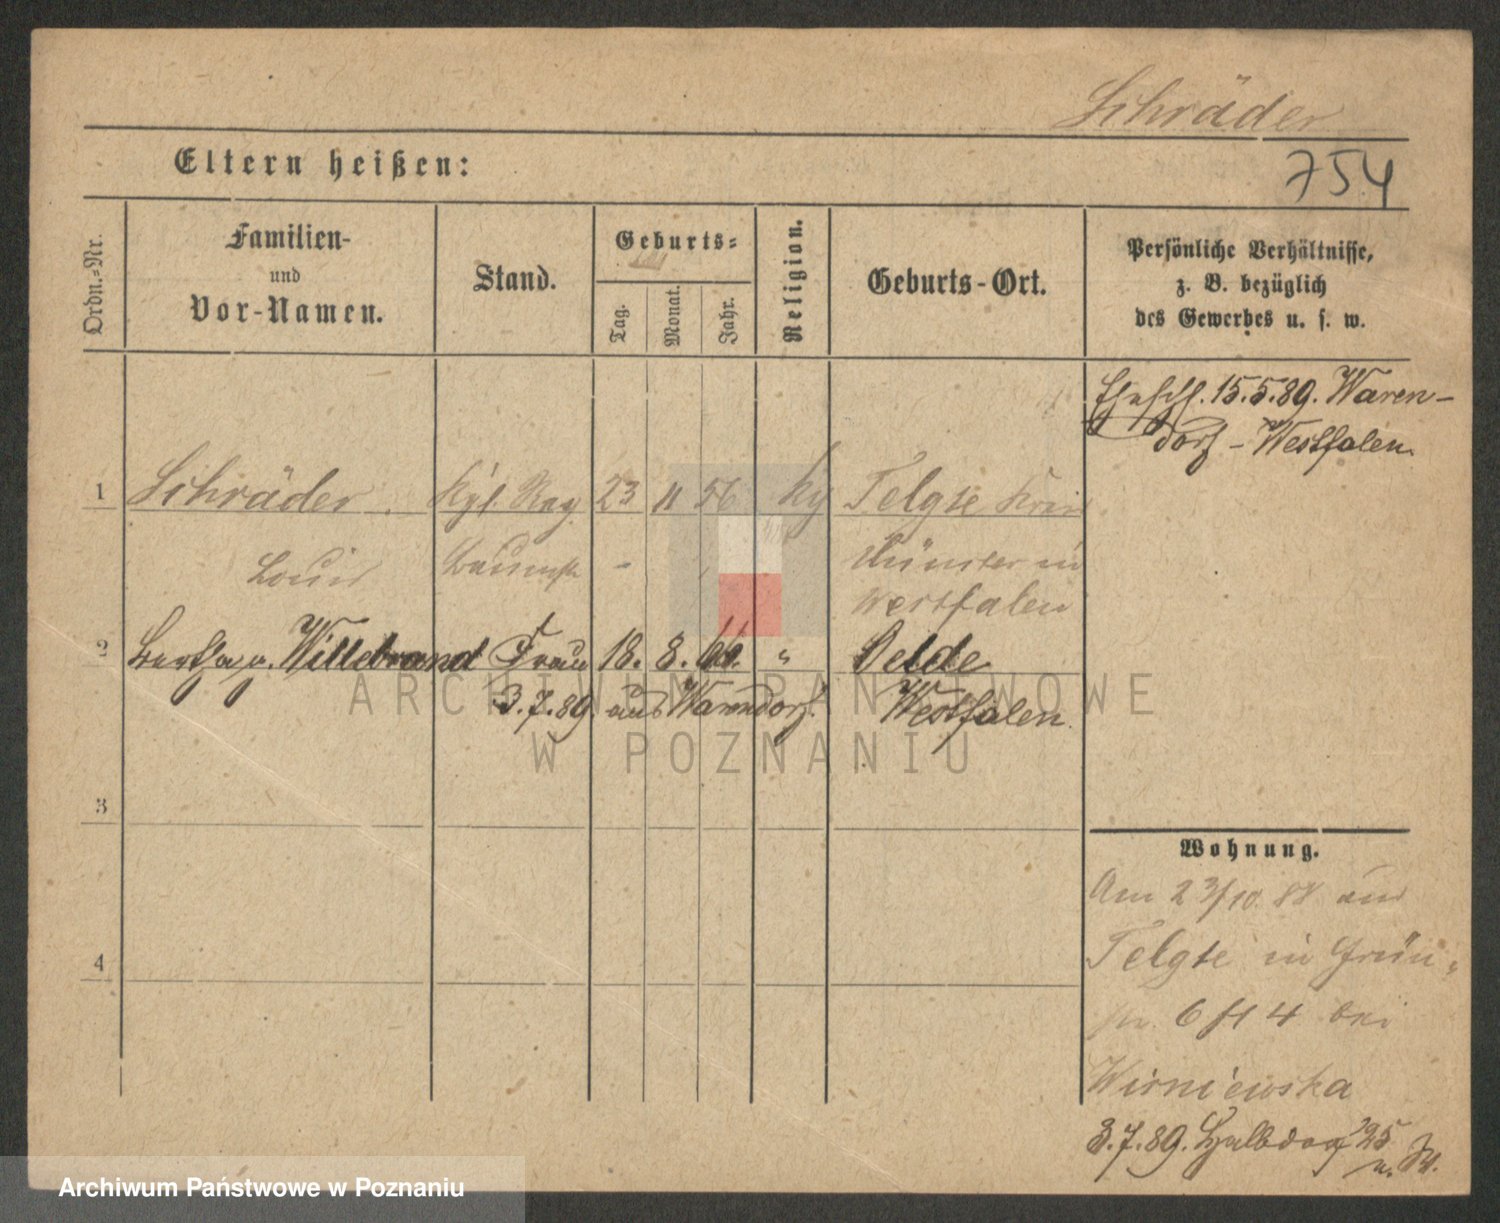 Schräder
Eltern heißen:
754
Ordn.-Nr.
Familien-
und
Vor-Namen.
Stand.
Geburts-
Tag.
Monat.
Jahr.
Religion.
Geburts-Ort.
Persönliche Verhältnisse,
z. B. bezüglich
des Gewerbes u. s. w.
Eheschl. 15.5.89. Waren-
dorf - Westfalen
1 Schräder Kgl. Reg 23 11 56 Telgte Kreis
Louis Münster in
Westfalen
2 Bertha Willebrand Frau 18. 8. " Oelde
3.7.89. aus Warendorf. Westfalen
3
4
Wohnung.
Am 23/10. 88 aus
Telgte in Grün-
6 4 bei
Wisniewska
3.7.89. Halbdorf 25
ARCHIWUM PAŃSTWOWE
W POZNANIU
Archiwum Państwowe w Poznaniu